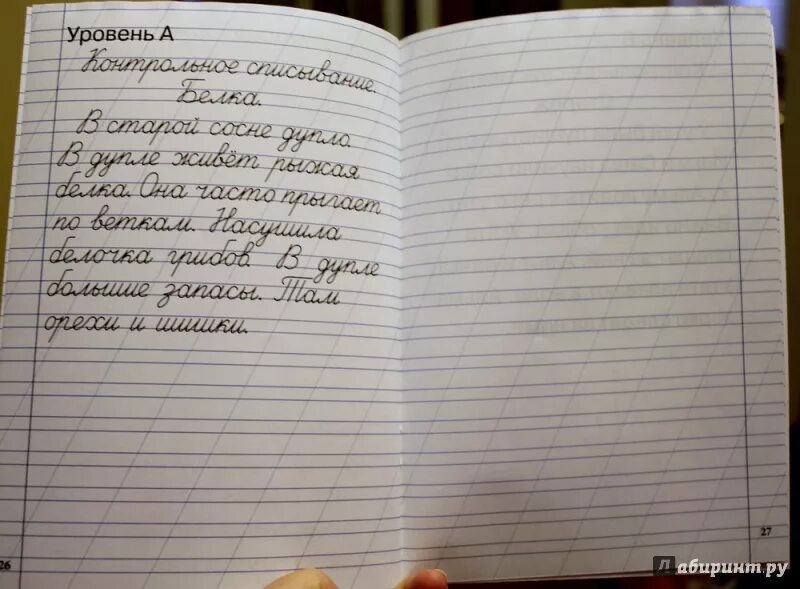 Уровень А
Контрольное списывание.
Белка.
В старой сосне дупло.
В дупле живёт рыжая
белка. Она часто прыгает
по веткам. Насушила
белочка грибов. В дупле
большие запасы. Там
орехи и шишки.
26
27
Лабиринт.ру